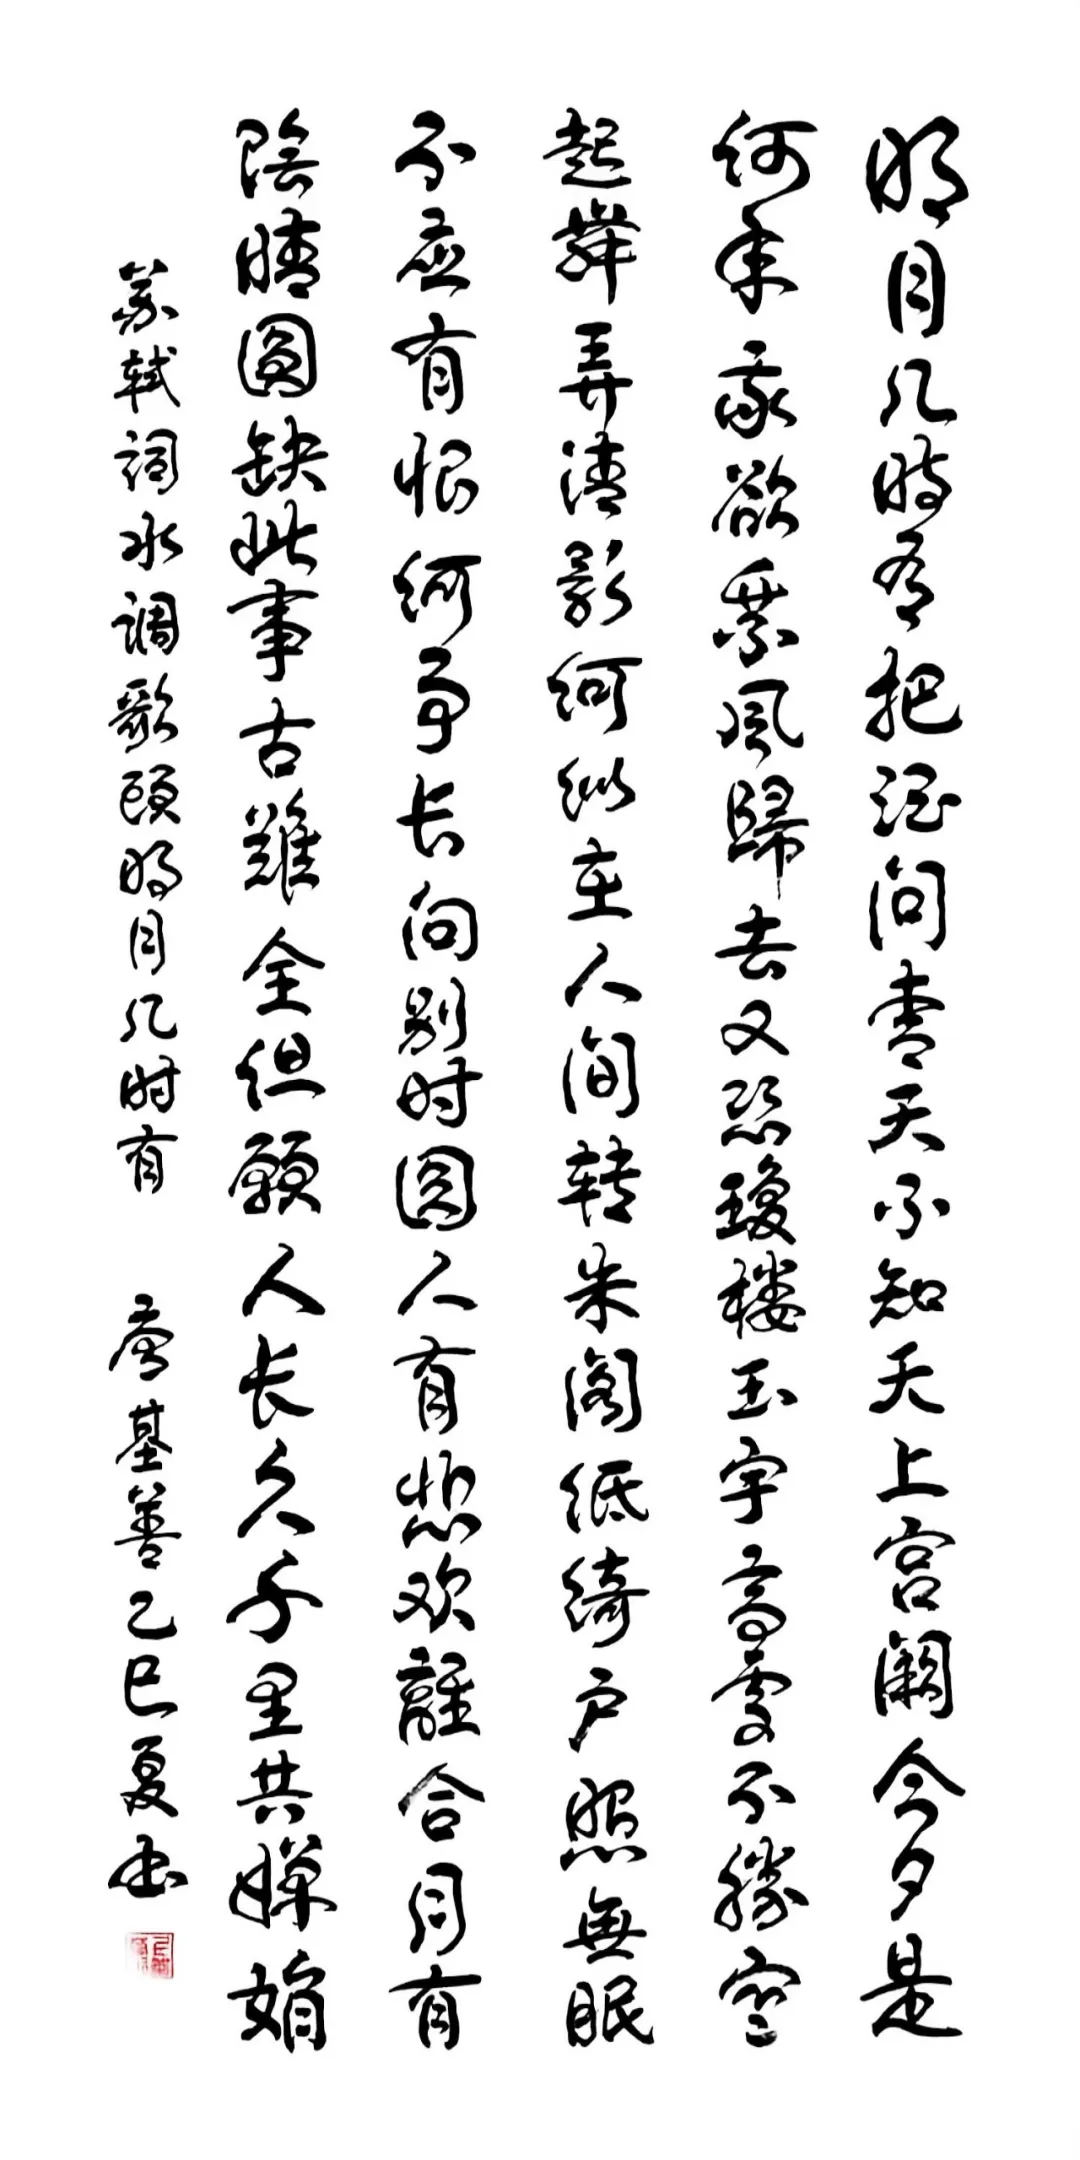 明月几時有把酒问青天不知天上宫阙今夕是
何年我欲乘风歸去又恐瓊楼玉宇高處不勝寒
起舞弄清影何似在人间转朱阁低绮户照無眠
不应有恨何事长向别时圆人有悲欢離合月有
陰晴圓缺此事古難全但願人长久千里共婵娟
苏轼词水调歌頭明月几时有 唐基善乙巳夏书